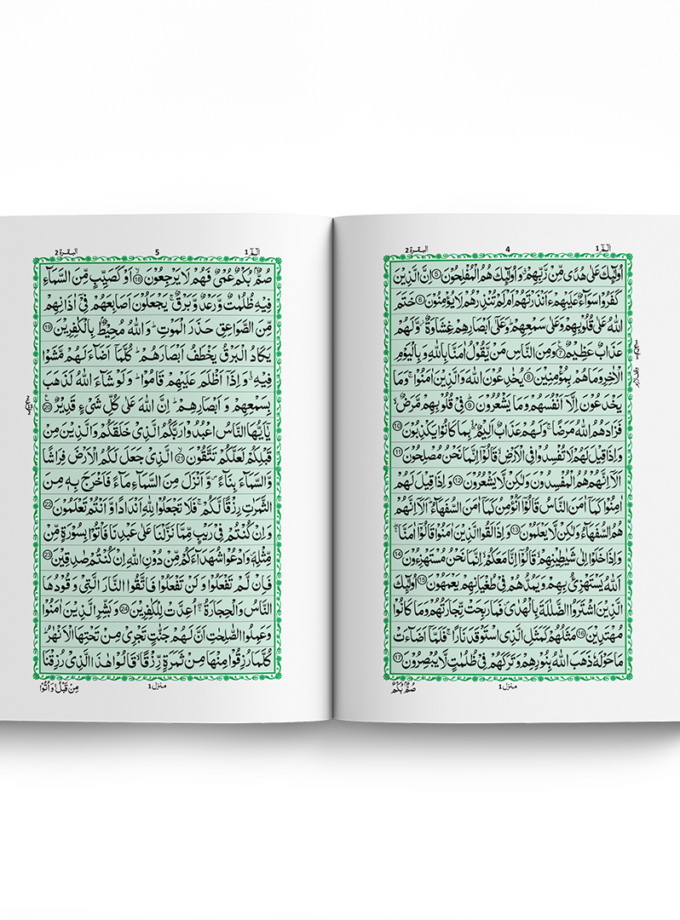 الٓمّٓ 1
4
البقرة 2
اُولٰٓئِكَ عَلٰى هُدًى مِّنْ رَّبِّهِمْ ۙ وَاُولٰٓئِكَ هُمُ الْمُفْلِحُوْنَ ﴿۵﴾ اِنَّ الَّذِيْنَ
كَفَرُوْا سَوَآءٌ عَلَيْهِمْ ءَاَنْذَرْتَهُمْ اَمْ لَمْ تُنْذِرْهُمْ لَا يُؤْمِنُوْنَ ﴿۶﴾ خَتَمَ
اللّٰهُ عَلٰى قُلُوْبِهِمْ وَعَلٰى سَمْعِهِمْ ؕ وَعَلٰٓى اَبْصَارِهِمْ غِشَاوَةٌ ۫ وَّلَهُمْ
عَذَابٌ عَظِيْمٌ ﴿۷﴾ وَمِنَ النَّاسِ مَنْ يَّقُوْلُ اٰمَنَّا بِاللّٰهِ وَبِالْيَوْمِ
الْاٰخِرِ وَمَا هُمْ بِمُؤْمِنِيْنَ ﴿۸﴾ يُخٰدِعُوْنَ اللّٰهَ وَالَّذِيْنَ اٰمَنُوْا ۚ وَمَا
يَخْدَعُوْنَ اِلَّاۤ اَنْفُسَهُمْ وَمَا يَشْعُرُوْنَ ﴿۹﴾ فِيْ قُلُوْبِهِمْ مَّرَضٌ ۙ
فَزَادَهُمُ اللّٰهُ مَرَضًا ۚ وَلَهُمْ عَذَابٌ اَلِيْمٌۢ ۙ بِمَا كَانُوْا يَكْذِبُوْنَ ﴿۱۰﴾
وَاِذَا قِيْلَ لَهُمْ لَا تُفْسِدُوْا فِي الْاَرْضِ ۙ قَالُوْٓا اِنَّمَا نَحْنُ مُصْلِحُوْنَ ﴿۱۱﴾
اَلَآ اِنَّهُمْ هُمُ الْمُفْسِدُوْنَ وَلٰكِنْ لَّا يَشْعُرُوْنَ ﴿۱۲﴾ وَاِذَا قِيْلَ لَهُمْ
اٰمِنُوْا كَمَآ اٰمَنَ النَّاسُ قَالُوْٓا اَنُؤْمِنُ كَمَآ اٰمَنَ السُّفَهَآءُ ؕ اَلَآ اِنَّهُمْ
هُمُ السُّفَهَآءُ وَلٰكِنْ لَّا يَعْلَمُوْنَ ﴿۱۳﴾ وَاِذَا لَقُوا الَّذِيْنَ اٰمَنُوْا قَالُوْٓا اٰمَنَّا ۚ
وَاِذَا خَلَوْا اِلٰى شَيٰطِيْنِهِمْ ۙ قَالُوْٓا اِنَّا مَعَكُمْ ۙ اِنَّمَا نَحْنُ مُسْتَهْزِءُوْنَ ﴿۱۴﴾
اَللّٰهُ يَسْتَهْزِئُ بِهِمْ وَيَمُدُّهُمْ فِيْ طُغْيَانِهِمْ يَعْمَهُوْنَ ﴿۱۵﴾ اُولٰٓئِكَ
الَّذِيْنَ اشْتَرَوُا الضَّلٰلَةَ بِالْهُدٰى ۪ فَمَا رَبِحَتْ تِّجَارَتُهُمْ وَمَا كَانُوْا
مُهْتَدِيْنَ ﴿۱۶﴾ مَثَلُهُمْ كَمَثَلِ الَّذِي اسْتَوْقَدَ نَارًا ۚ فَلَمَّآ اَضَآءَتْ
مَا حَوْلَهٗ ذَهَبَ اللّٰهُ بِنُوْرِهِمْ وَتَرَكَهُمْ فِيْ ظُلُمٰتٍ لَّا يُبْصِرُوْنَ ﴿۱۷﴾
منزل 1
صُمٌّۢ بُكْمٌ
الٓمّٓ 1
5
البقرة 2
صُمٌّۢ بُكْمٌ عُمْيٌ فَهُمْ لَا يَرْجِعُوْنَ ﴿۱۸﴾ اَوْ كَصَيِّبٍ مِّنَ السَّمَآءِ
فِيْهِ ظُلُمٰتٌ وَّرَعْدٌ وَّبَرْقٌ ۚ يَجْعَلُوْنَ اَصَابِعَهُمْ فِيْٓ اٰذَانِهِمْ
مِّنَ الصَّوَاعِقِ حَذَرَ الْمَوْتِ ؕ وَاللّٰهُ مُحِيْطٌۢ بِالْكٰفِرِيْنَ ﴿۱۹﴾
يَكَادُ الْبَرْقُ يَخْطَفُ اَبْصَارَهُمْ ؕ كُلَّمَآ اَضَآءَ لَهُمْ مَّشَوْا
فِيْهِ ۙ وَاِذَآ اَظْلَمَ عَلَيْهِمْ قَامُوْا ؕ وَلَوْ شَآءَ اللّٰهُ لَذَهَبَ
بِسَمْعِهِمْ وَاَبْصَارِهِمْ ؕ اِنَّ اللّٰهَ عَلٰى كُلِّ شَيْءٍ قَدِيْرٌ ﴿۲۰﴾
يٰٓاَيُّهَا النَّاسُ اعْبُدُوْا رَبَّكُمُ الَّذِيْ خَلَقَكُمْ وَالَّذِيْنَ مِنْ
قَبْلِكُمْ لَعَلَّكُمْ تَتَّقُوْنَ ﴿۲۱﴾ الَّذِيْ جَعَلَ لَكُمُ الْاَرْضَ فِرَاشًا
وَّالسَّمَآءَ بِنَآءً ۪ وَّاَنْزَلَ مِنَ السَّمَآءِ مَآءً فَاَخْرَجَ بِهٖ مِنَ
الثَّمَرٰتِ رِزْقًا لَّكُمْ ۚ فَلَا تَجْعَلُوْا لِلّٰهِ اَنْدَادًا وَّاَنْتُمْ تَعْلَمُوْنَ ﴿۲۲﴾
وَاِنْ كُنْتُمْ فِيْ رَيْبٍ مِّمَّا نَزَّلْنَا عَلٰى عَبْدِنَا فَاْتُوْا بِسُوْرَةٍ مِّنْ
مِّثْلِهٖ ۪ وَادْعُوْا شُهَدَآءَكُمْ مِّنْ دُوْنِ اللّٰهِ اِنْ كُنْتُمْ صٰدِقِيْنَ ﴿۲۳﴾
فَاِنْ لَّمْ تَفْعَلُوْا وَلَنْ تَفْعَلُوْا فَاتَّقُوا النَّارَ الَّتِيْ وَقُوْدُهَا
النَّاسُ وَالْحِجَارَةُ ۖۚ اُعِدَّتْ لِلْكٰفِرِيْنَ ﴿۲۴﴾ وَبَشِّرِ الَّذِيْنَ اٰمَنُوْا
وَعَمِلُوا الصّٰلِحٰتِ اَنَّ لَهُمْ جَنّٰتٍ تَجْرِيْ مِنْ تَحْتِهَا الْاَنْهٰرُ ؕ
كُلَّمَا رُزِقُوْا مِنْهَا مِنْ ثَمَرَةٍ رِّزْقًا ۙ قَالُوْا هٰذَا الَّذِيْ رُزِقْنَا
منزل 1
مِنْ قَبْلُ وَاُتُوْا